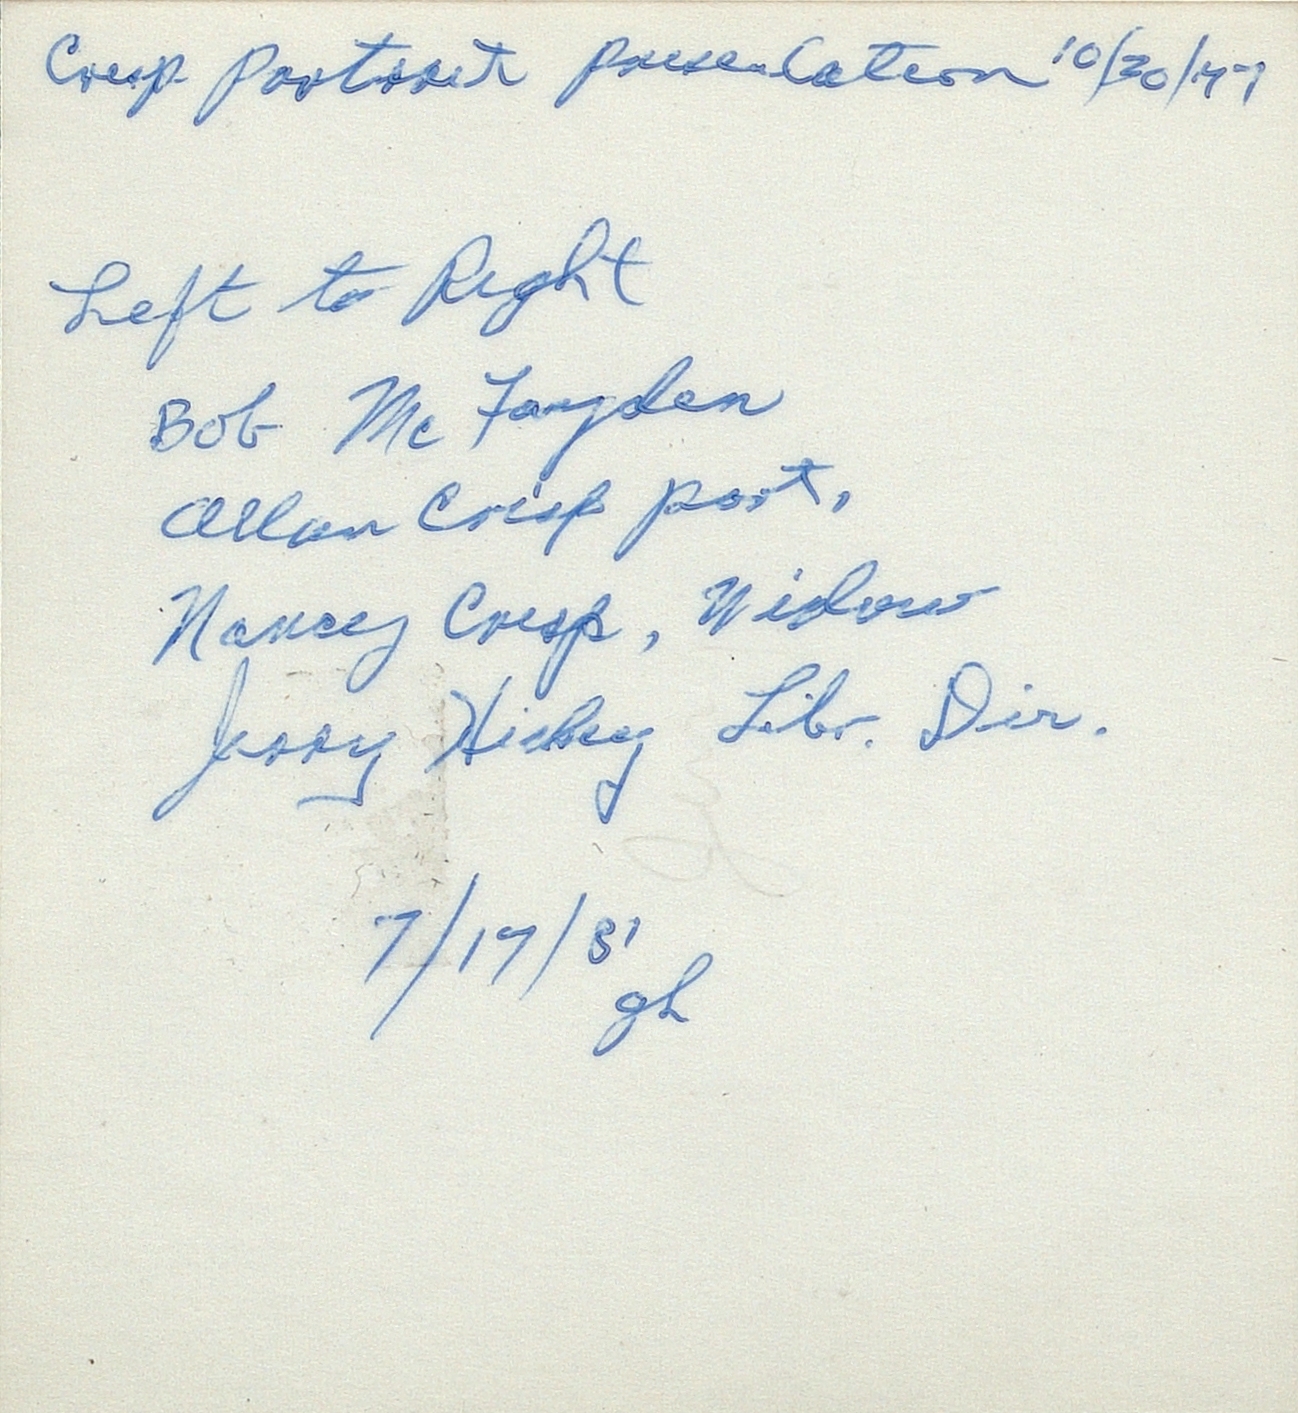 Crisp Portrait presentation 10/30/77
Left to Right
Bob McFayden
Allan Crisp port,
Nancy Crisp, Widow
Jerry Hickey Libr. Dir.
7/17/81
gh